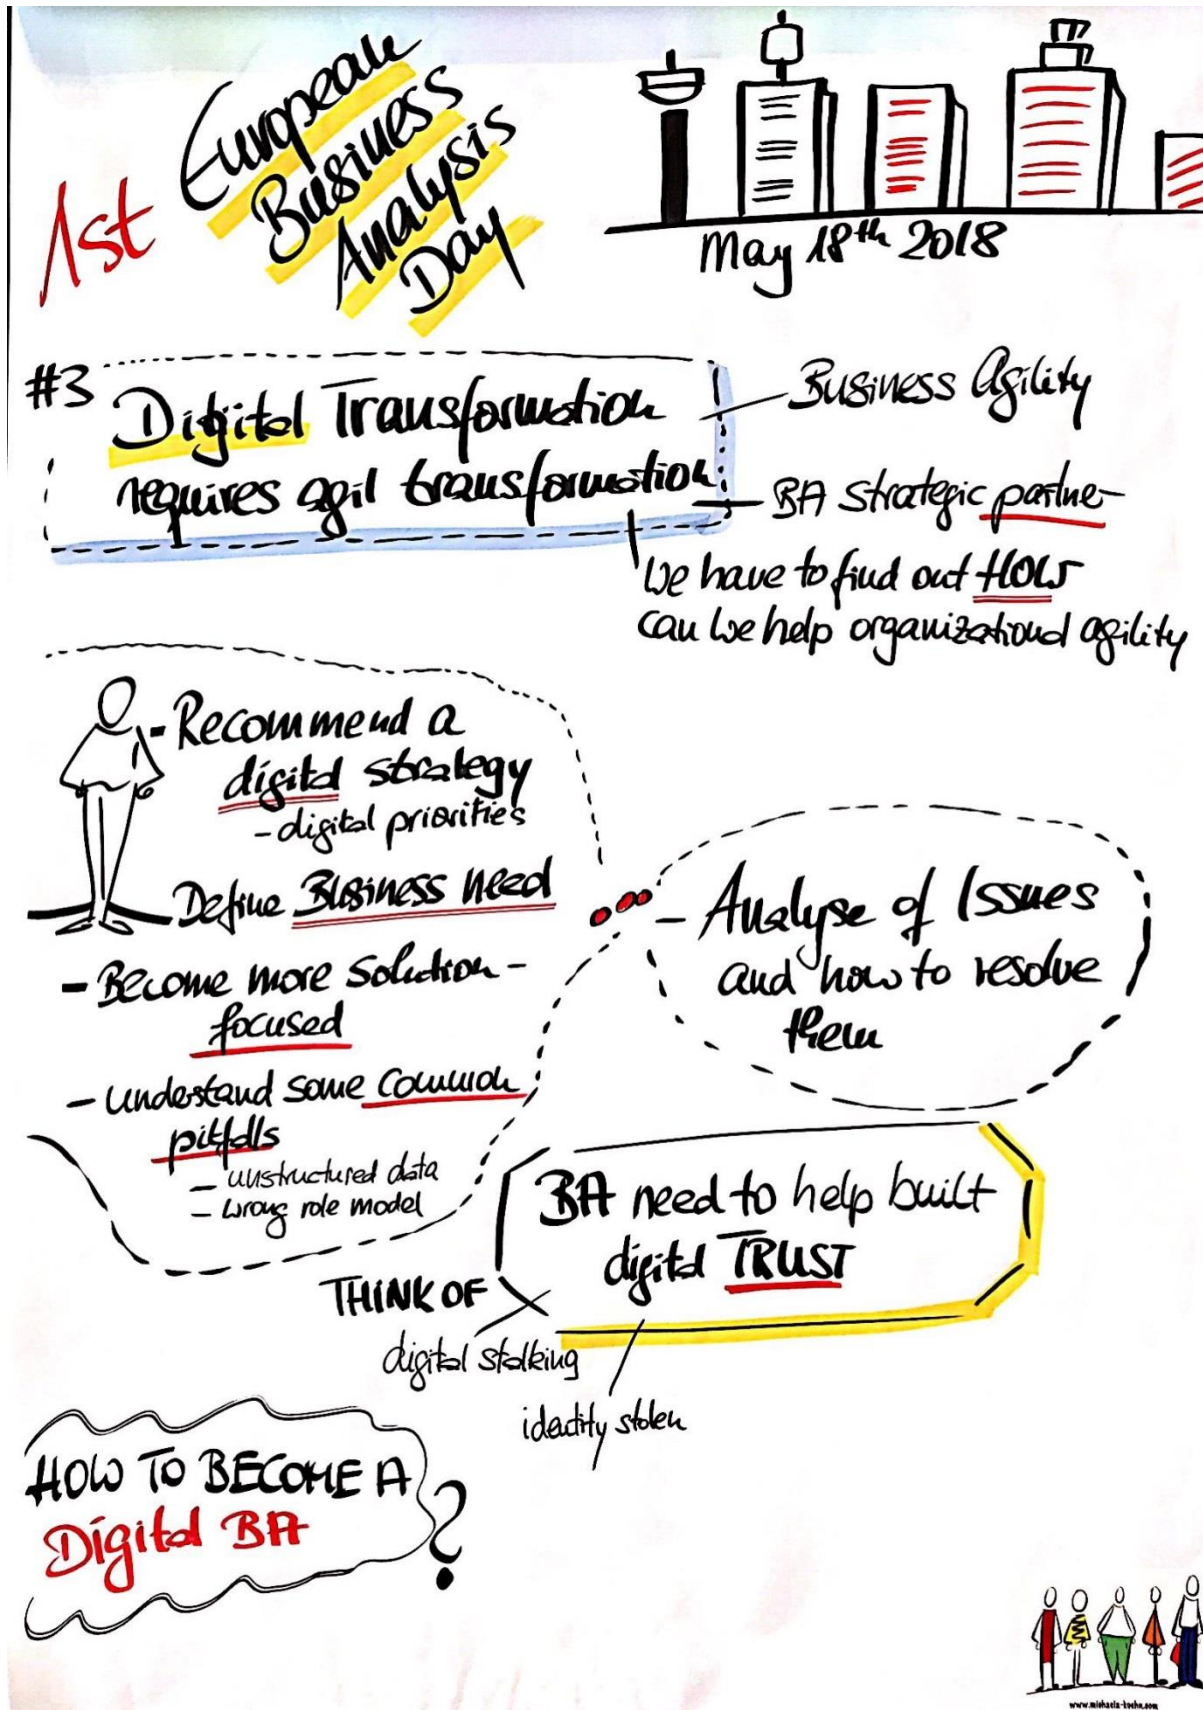 1st
European
Business
Analysis
Day
May 18th 2018
#3
Digital Transformation
requires agil transformation
Business Agility
BA Strategic partner
We have to find out HOW
can we help organizational agility
- Recommend a
digital strategy
- digital priorities
- Define Business need
- Become more solution-
focused
- understand some common
pitfalls
- unstructured data
- wrong role model
- Analyse of Issues
and how to resolve
them
BA need to help built
digital TRUST
THINK OF
digital stalking
identity stolen
HOW TO BECOME A
Digital BA
?